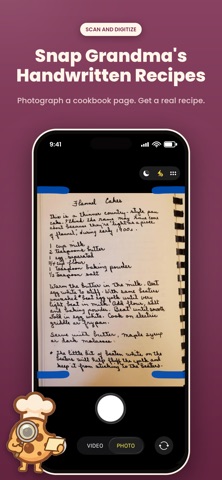 SCAN AND DIGITIZE
Snap Grandma's
Handwritten Recipes
Photograph a cookbook page. Get a real recipe.
9:41
Flannel Cakes
This is a thinner country style pan
cake. I think the name may have
about because
of flannel, during early 1900s.
1 cup milk
2 teaspoons butter
1 egg, separated
cup flour
1 teaspoon baking powder
teaspoon salt
Warm the butter in the milk. Beat
egg white to stiff. With same beaters
unwashed beat egg yolk until very
light beat in milk. Add flour, salt
and baking powder. Beat until smooth
fold in egg white. Cook on electric
griddle or frypan.
Serve with butter, maple syrup
or dark molasses.
* The little bit of beaten white on the
beaters will help fluff the yolk and
keep it from sticking to the beaters.
VIDEO
PHOTO